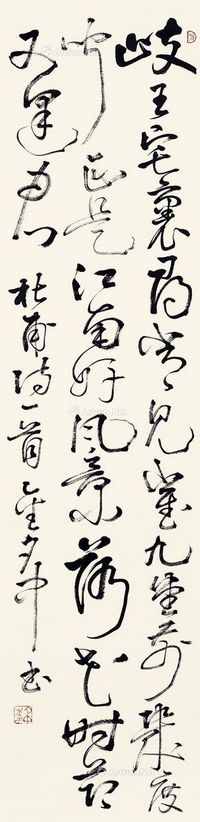 岐王宅裏尋常見崔九堂前幾度
聞正是江南好風景落花時節
又逢君
杜甫詩一首
书